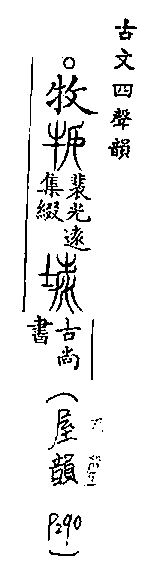 古文四聲韻
。牧
裴光遠
集綴
古尚
書
(屋韻
P290)